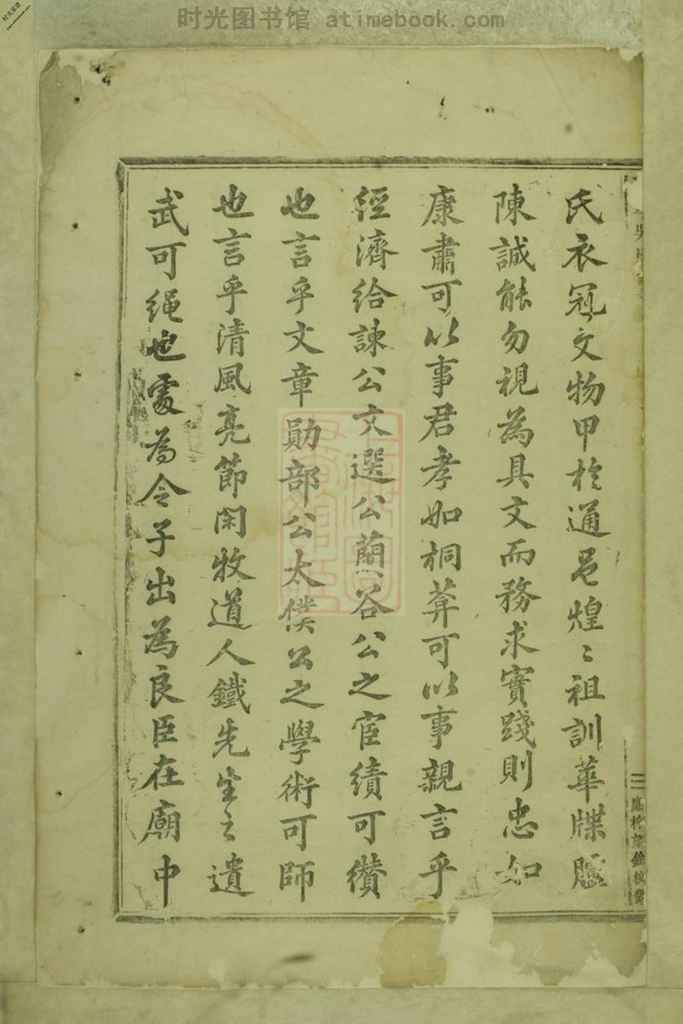 时光图书馆 atimebook.com
氏衣冠文物甲於通邑煌〻祖訓華牒臚
陳誠能勿視為具文而務求實踐則忠如
康肅可以事君孝如桐葬可以事親言乎
經濟給諫公文選公蘭谷公之宦績可纘
也言乎文章勛部公太僕公之學術可師
也言乎清風亮節閑牧道人鐵先生之遺
武可繩也處為令子出為良臣在廟中